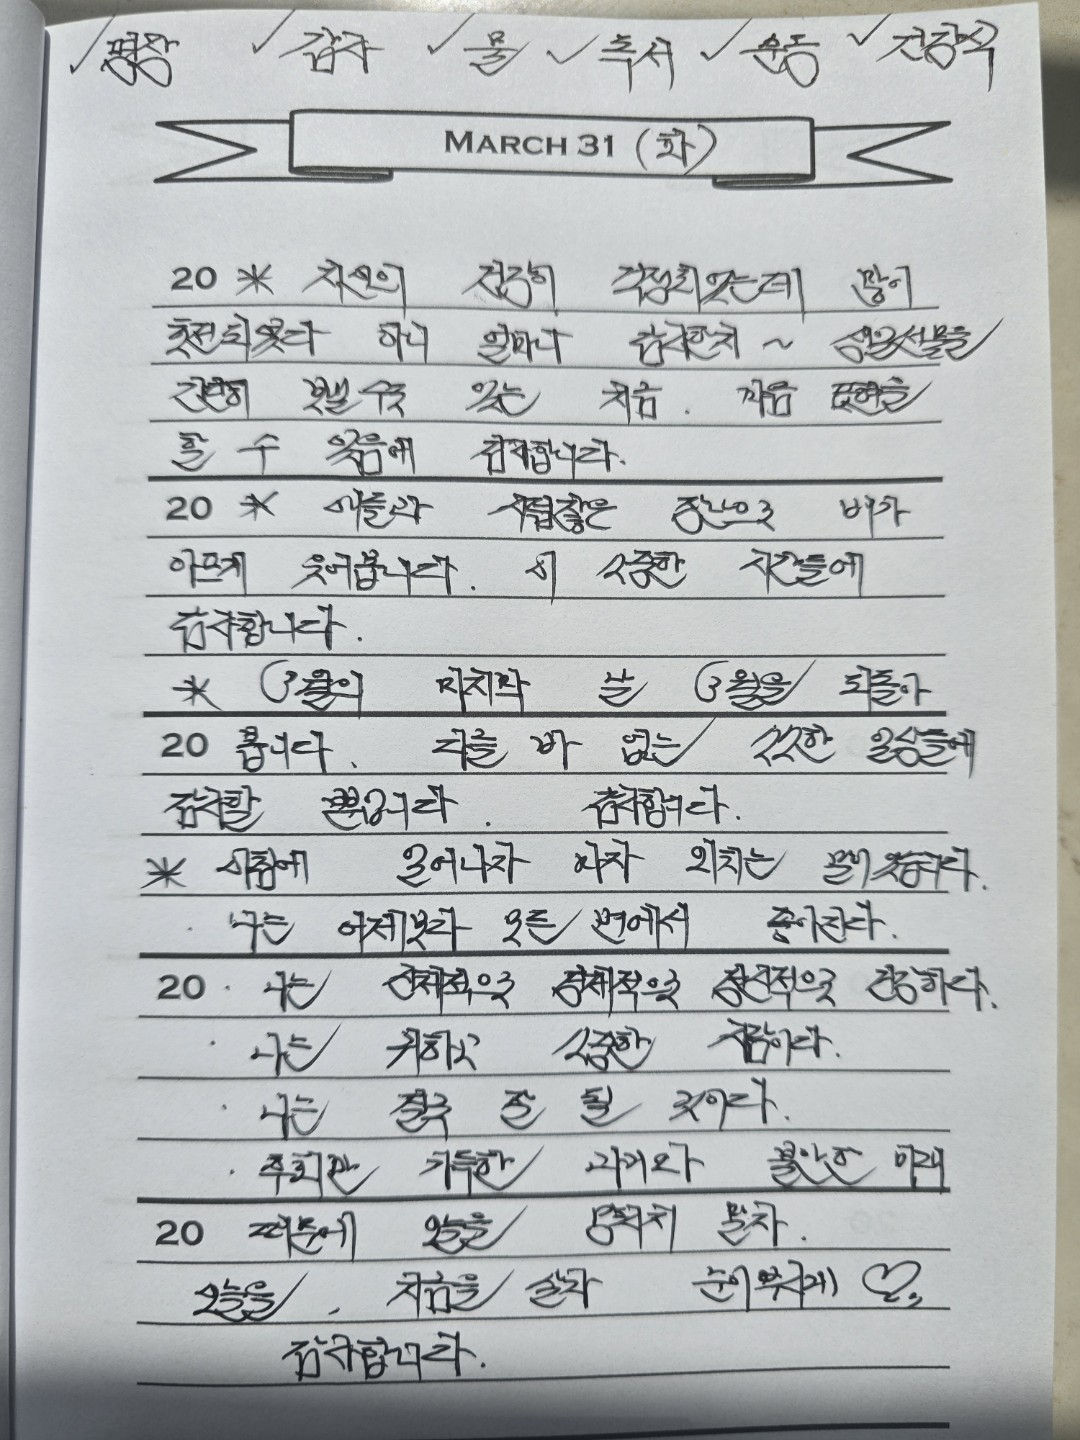 ✓명상 ✓감사 ✓물 ✓독서 ✓운동 ✓건강식
MARCH 31 (화)
20 * 치선이 전공이 걱정되었는데 많이
호전되었다 하니 얼마나 감사한지 ~ 생일선물을
간단히 보낼 수 있는 지금. 마음 표현을
할 수 있음에 감사합니다.
20 * 애들과 시절 줌으로 배가
아프게 웃어봅니다. 이 소중한 시간들에
감사합니다.
* 3월의 마지막 날 3월을 되돌아
20 봅니다. 더할 바 없는 소소한 일상들에
감사할 뿐입니다. 감사합니다.
* 아침에 일어나자 마자 외치는 말이 있습니다.
· 나는 어제보다 모든 면에서 좋아진다.
20 · 나는 신체적으로 경제적으로 정신적으로 건강하다.
· 나는 귀하고 소중한 사람이다.
· 나는 결국 잘 될 것이다.
· 후회만 가득한 과거와 불안한 미래
20 때문에 오늘을 망치지 말자.
오늘을, 지금을 살자 눈이부시게 ♡
감사합니다.